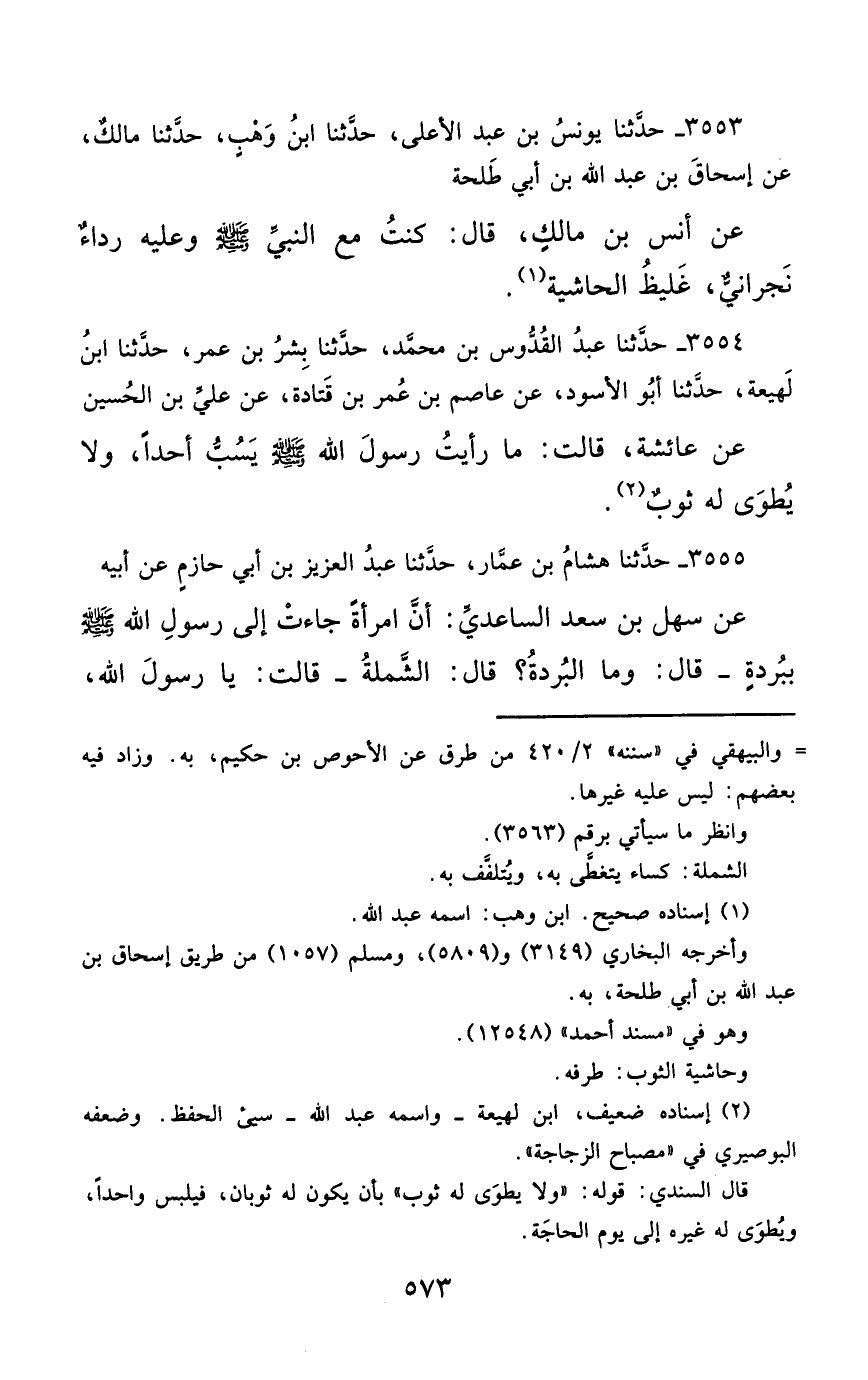 ٣٥٥٣ـ حدَّثنا يونسُ بن عبد الأعلى، حدَّثنا ابنُ وَهْبٍ، حدَّثنا مالكٌ،
عن إسحاقَ بن عبد الله بن أبي طَلحة
عن أنس بن مالكٍ، قال: كنتُ مع النبيِّ ﷺ وعليه رداءٌ
نَجرانيٌّ، غَليظُ الحاشية(١).
٣٥٥٤ـ حدَّثنا عبدُ القُدُّوس بن محمَّد، حدَّثنا بِشرُ بن عمر، حدَّثنا ابنُ
لَهيعة، حدَّثنا أبُو الأسود، عن عاصم بن عُمر بن قَتادة، عن عليِّ بن الحُسين
عن عائشة، قالت: ما رأيتُ رسولَ الله ﷺ يَسُبُّ أحداً، ولا
يُطوَى له ثوبٌ(٢).
٣٥٥٥ـ حدَّثنا هشامُ بن عمَّار، حدَّثنا عبدُ العزيز بن أبي حازمٍ عن أبيه
عن سهل بن سعد الساعديِّ: أنَّ امرأةً جاءتْ إلى رسولِ الله ﷺ
ببُردةٍ ـ قال: وما البُردةُ؟ قال: الشَّملةُ ـ قالت: يا رسولَ الله،
= والبيهقي في «سننه» ٤٢٠/٢ من طرق عن الأحوص بن حكيم، به. وزاد فيه
بعضهم: ليس عليه غيرها.
وانظر ما سيأتي برقم (٣٥٦٣).
الشملة: كساء يتغطَّى به، ويُتلفَّف به.
(١) إسناده صحيح. ابن وهب: اسمه عبد الله.
وأخرجه البخاري (٣١٤٩) و(٥٨٠٩)، ومسلم (١٠٥٧) من طريق إسحاق بن
عبد الله بن أبي طلحة، به.
وهو في «مسند أحمد» (١٢٥٤٨).
وحاشية الثوب: طرفه.
(٢) إسناده ضعيف، ابن لهيعة ـ واسمه عبد الله ـ سيئ الحفظ. وضعفه
البوصيري في «مصباح الزجاجة».
قال السندي: قوله: «ولا يطوَى له ثوب» بأن يكون له ثوبان، فيلبس واحداً،
ويُطوَى له غيره إلى يوم الحاجَة.
٥٧٣